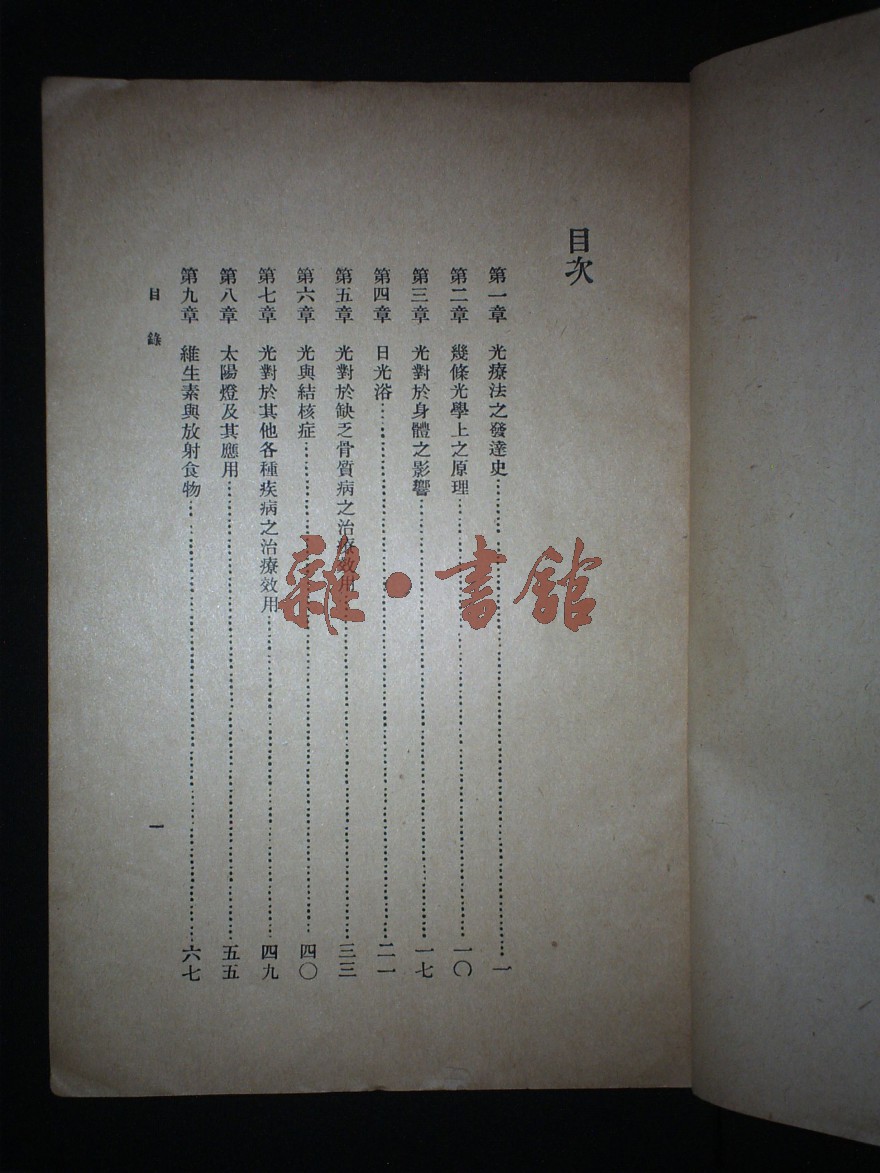 目次
第一章 光療法之發達史……一
第二章 幾條光學上之原理……一〇
第三章 光對於身體之影響……一七
第四章 日光浴……二一
第五章 光對於缺乏骨質病之治療效用……三三
第六章 光與結核症……四〇
第七章 光對於其他各種疾病之治療效用……四九
第八章 太陽燈及其應用……五五
第九章 維生素與放射食物……六七
目錄 一
雜·書館